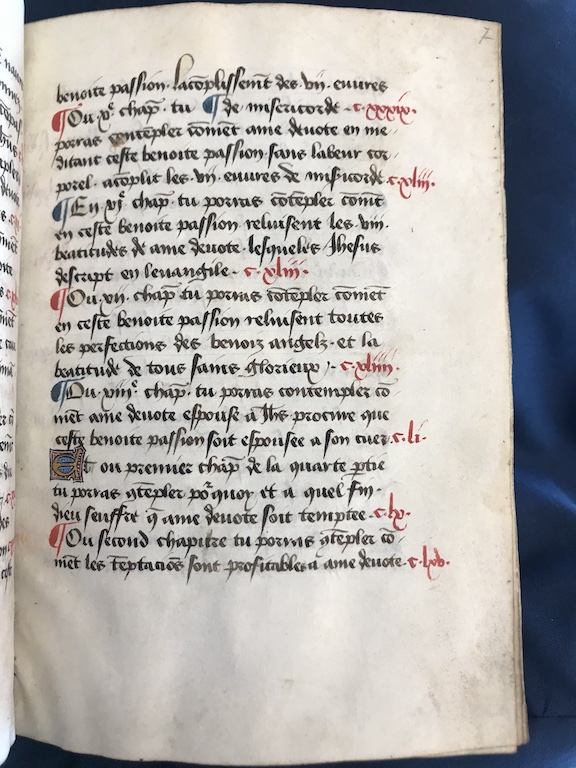 7
benoite passion. Lacõplissemẽt des .vii. euures
¶ Ou .xᵉ. chap̃. tu ¶ de misericorde .c.xxxix.
porras cõtẽpler cõmẽt ame deuote en me-
ditant ceste benoite passion. sans labeur cor-
porel. acõplit les .vii. euures de misẽricorde .c.xliii.
¶ En .xiᵉ. chap̃. tu porras cõtẽpler cõmẽt
en ceste benoite passion reluisent les .viii.
beatitudes de ame deuote. lesqueles Ihesus
descript en leuangile. c.xliii.
¶ Ou .xii. chap̃. tu porras cõtẽpler cõmẽt
en ceste benoite passion reluisent toutes
les perfections des benoiz angelz. et la
beatitude de tous sains glorieux. c.xliiii.
¶ Ou .xiiiᵉ. chap̃. tu porras contempler cõ-
mẽt ame deuote espouse a Ihs procure que
ceste benoite passion soit espousee a son cuer .c.li.
Et ou premier chap̃. de la quarte p̃tie
tu porras cõtẽpler por̃quoy et a quel fin.
dieu seuffre q̃ ame deuote soit temptee .c.lx.
¶ Ou second chapitre tu porras cõtẽpler cõ-
mẽt les tẽptaciõs sont profitables a ame deuote .c.lxv.